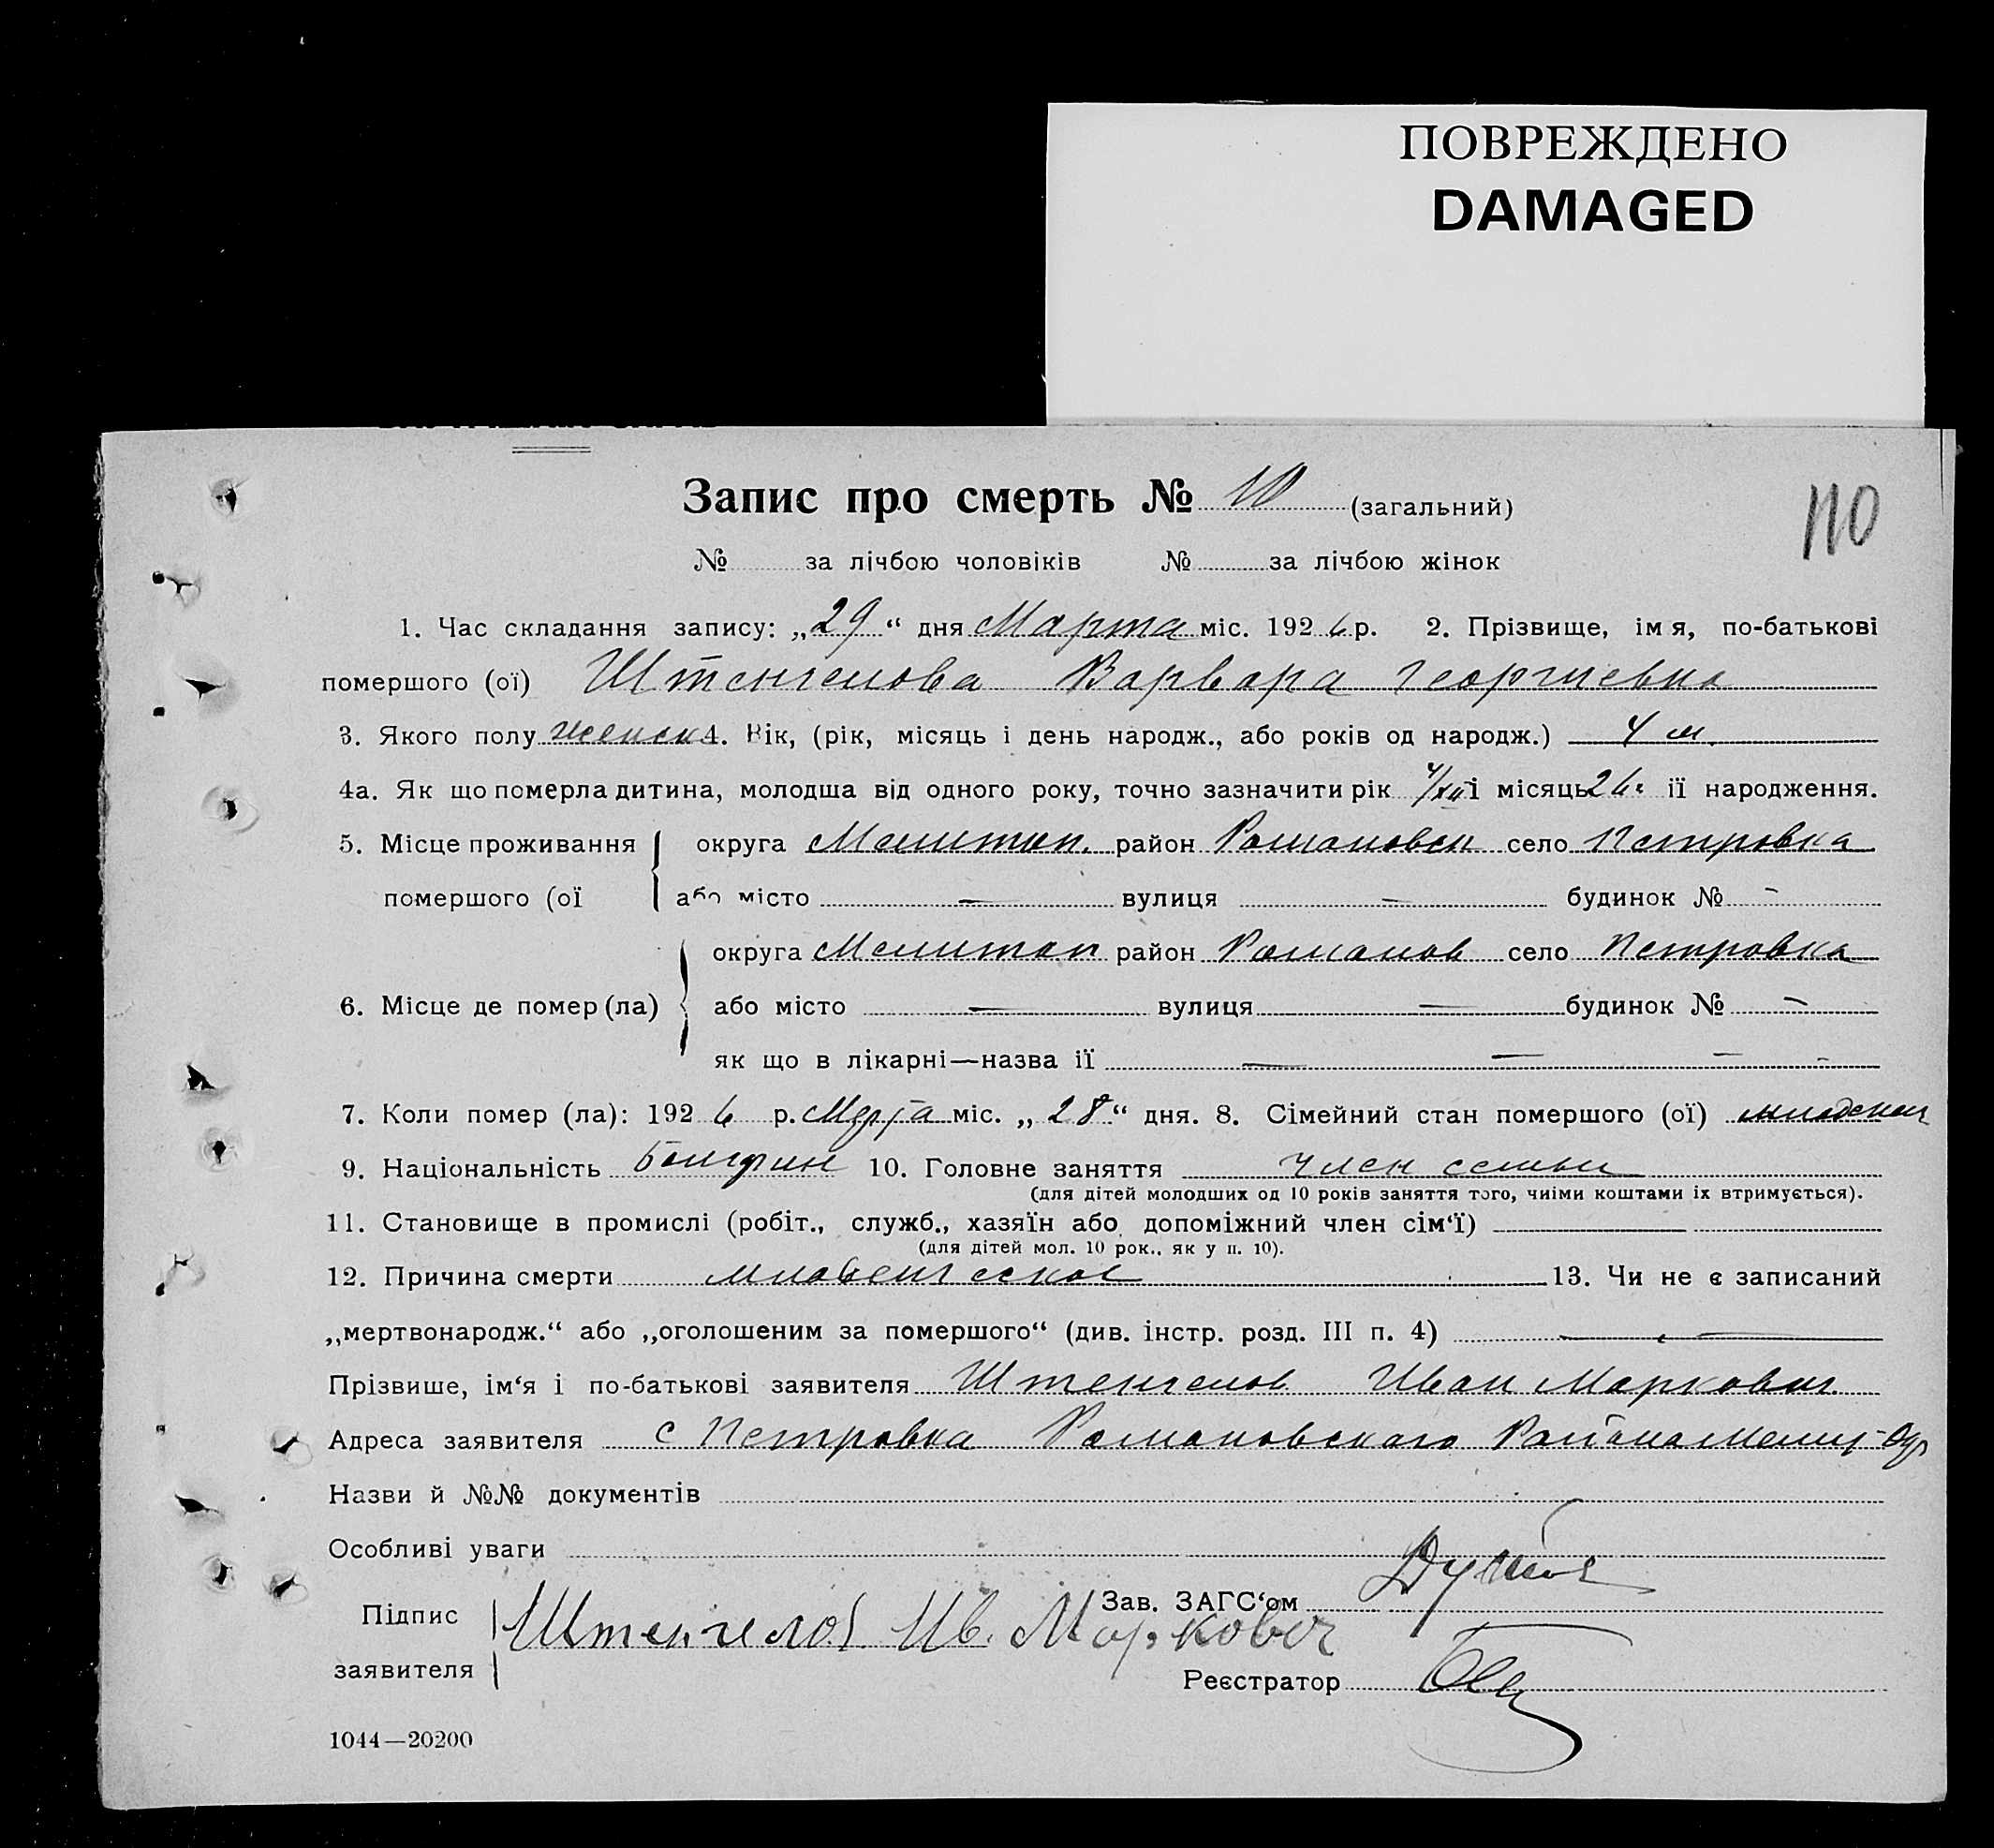 ПОВРЕЖДЕНО
DAMAGED
Запис про смерть № 10 (загальний)
110
№ за лічбою чоловіків № за лічбою жінок
1. Час складання запису: „29“ дня Марта міс. 1926 р. 2. Прізвище, імя, по-батькові
помершого (ої) Штенгелова Варвара Георгиевна
3. Якого полу женск 4. Вік, (рік, місяць і день народж., або років од народж.) 4 м.
4а. Як що померла дитина, молодша від одного року, точно зазначити рік і місяць її народження.
5. Місце проживання округа Мелитоп. район Романовск село Петровка
помершого (ої або місто — вулиця — будинок № -
округа Мелитоп район Романов село Петровка
6. Місце де помер (ла) або місто — вулиця — будинок № -
як що в лікарні—назва її — — - -
7. Коли помер (ла): 1926 р. Марта міс. „28“ дня. 8. Сімейний стан помершого (ої)
9. Національність 10. Головне заняття член семьи
(для дітей молодших од 10 років заняття того, чиїми коштами їх втримується).
11. Становище в промислі (робіт., служб., хазяїн або допоміжний член сім‘ї) —
(для дітей мол. 10 рок., як у п. 10).
12. Причина смерти 13. Чи не є записаний
„мертвонародж.“ або „оголошеним за помершого“ (див. інстр. розд. III п. 4) —
Прізвише, ім‘я і по-батькові заявителя Штенгелов Иван Маркович
Адреса заявителя с Петровка Романовского Района Мелит-окр
Назви й №№ документів
Особливі уваги
Зав. ЗАГС‘ом
Підпис Штенгелов Ив. Маркович
заявителя
Реєстратор
1044—20200